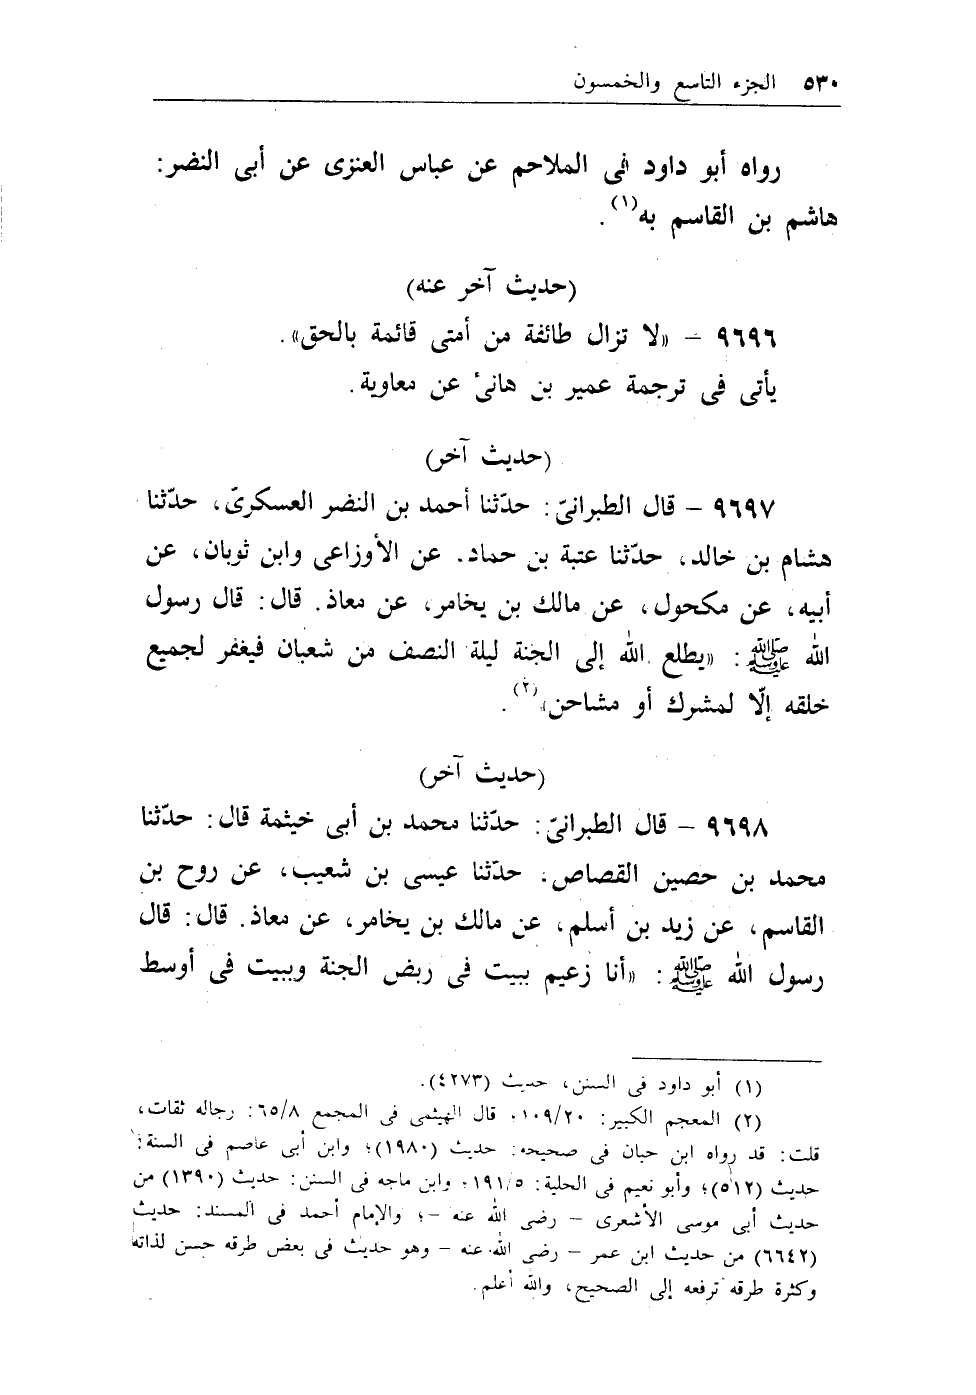 ٥٣٠ الجزء التاسع والخمسون
رواه أبو داود فى الملاحم عن عباس العنزى عن أبى النضر:
هاشم بن القاسم به(١).
(حديث آخر عنه)
٩٦٩٦ – «لا تزال طائفة من أمتى قائمة بالحق».
يأتى فى ترجمة عمير بن هانئ عن معاوية.
(حديث آخر)
٩٦٩٧ – قال الطبرانىّ: حدّثنا أحمد بن النضر العسكرىّ، حدّثنا
هشام بن خالد، حدّثنا عتبة بن حماد. عن الأوزاعى وابن ثوبان، عن
أبيه، عن مكحول، عن مالك بن يخامر، عن معاذ. قال: قال رسول
الله ﷺ: «يطلع الله إلى الجنة ليلة النصف من شعبان فيغفر لجميع
خلقه إلّا لمشرك أو مشاحن»(٢).
(حديث آخر)
٩٦٩٨ – قال الطبرانىّ: حدّثنا محمد بن أبى خيثمة قال: حدّثنا
محمد بن حصين القصاص، حدّثنا عيسى بن شعيب، عن روح بن
القاسم، عن زيد بن أسلم، عن مالك بن يخامر، عن معاذ. قال: قال
رسول الله ﷺ: «أنا زعيم ببيت فى ربض الجنة وببيت فى أوسط
(١) أبو داود فى السنن، حديث (٤٢٧٣).
(٢) المعجم الكبير: ١٠٩/٢٠، قال الهيثمى فى المجمع ٦٥/٨: رجاله ثقات،
قلت: قد رواه ابن حبان فى صحيحه: حديث (١٩٨٠)؛ وابن أبى عاصم فى السنة:
حديث (٥١٢)؛ وأبو نعيم فى الحلية: ١٩١/٥، وابن ماجه فى السنن: حديث (١٣٩٠) من
حديث أبى موسى الأشعرى – رضى الله عنه –؛ والإمام أحمد فى المسند: حديث
(٦٦٤٢) من حديث ابن عمر – رضى الله عنه – وهو حديث فى بعض طرقه حسن لذاته
وكثرة طرقه ترفعه إلى الصحيح، والله أعلم.